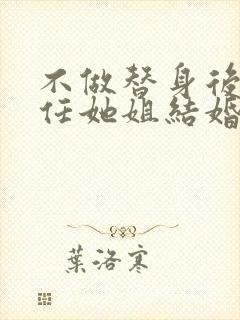 不做替身後
任她姐結婚
葉洛寒